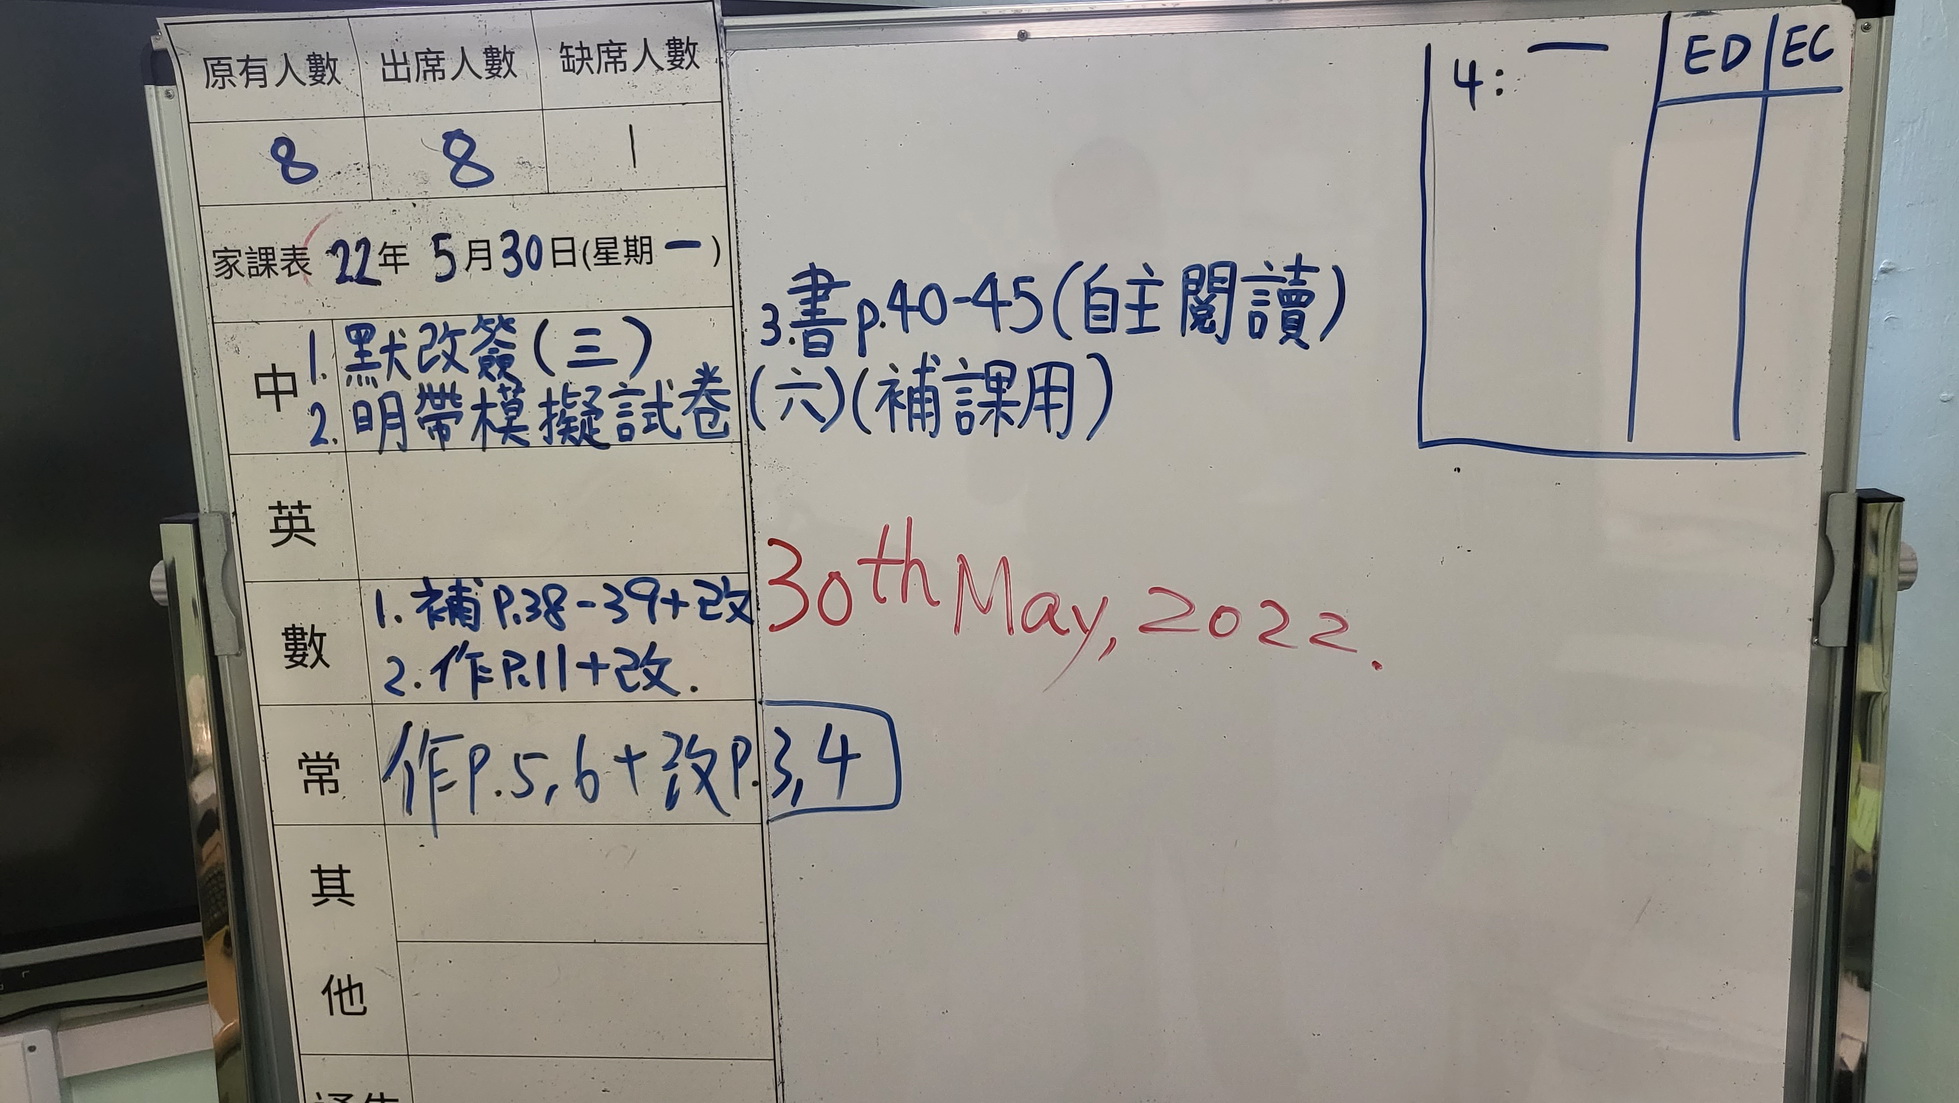 原有人數 出席人數 缺席人數
8 8 |
家課表 22年 5月30日(星期一)
中 1. 默改簽(三) 3.書p.40-45(自主閱讀)
2. 明帶模擬試卷(六)(補課用)
英
數 1. 補P.38-39+改
2. 作P.11+改.
常 作P.5,6+改P.3,4
其
他
4: 一 ED EC
30th May, 2022.